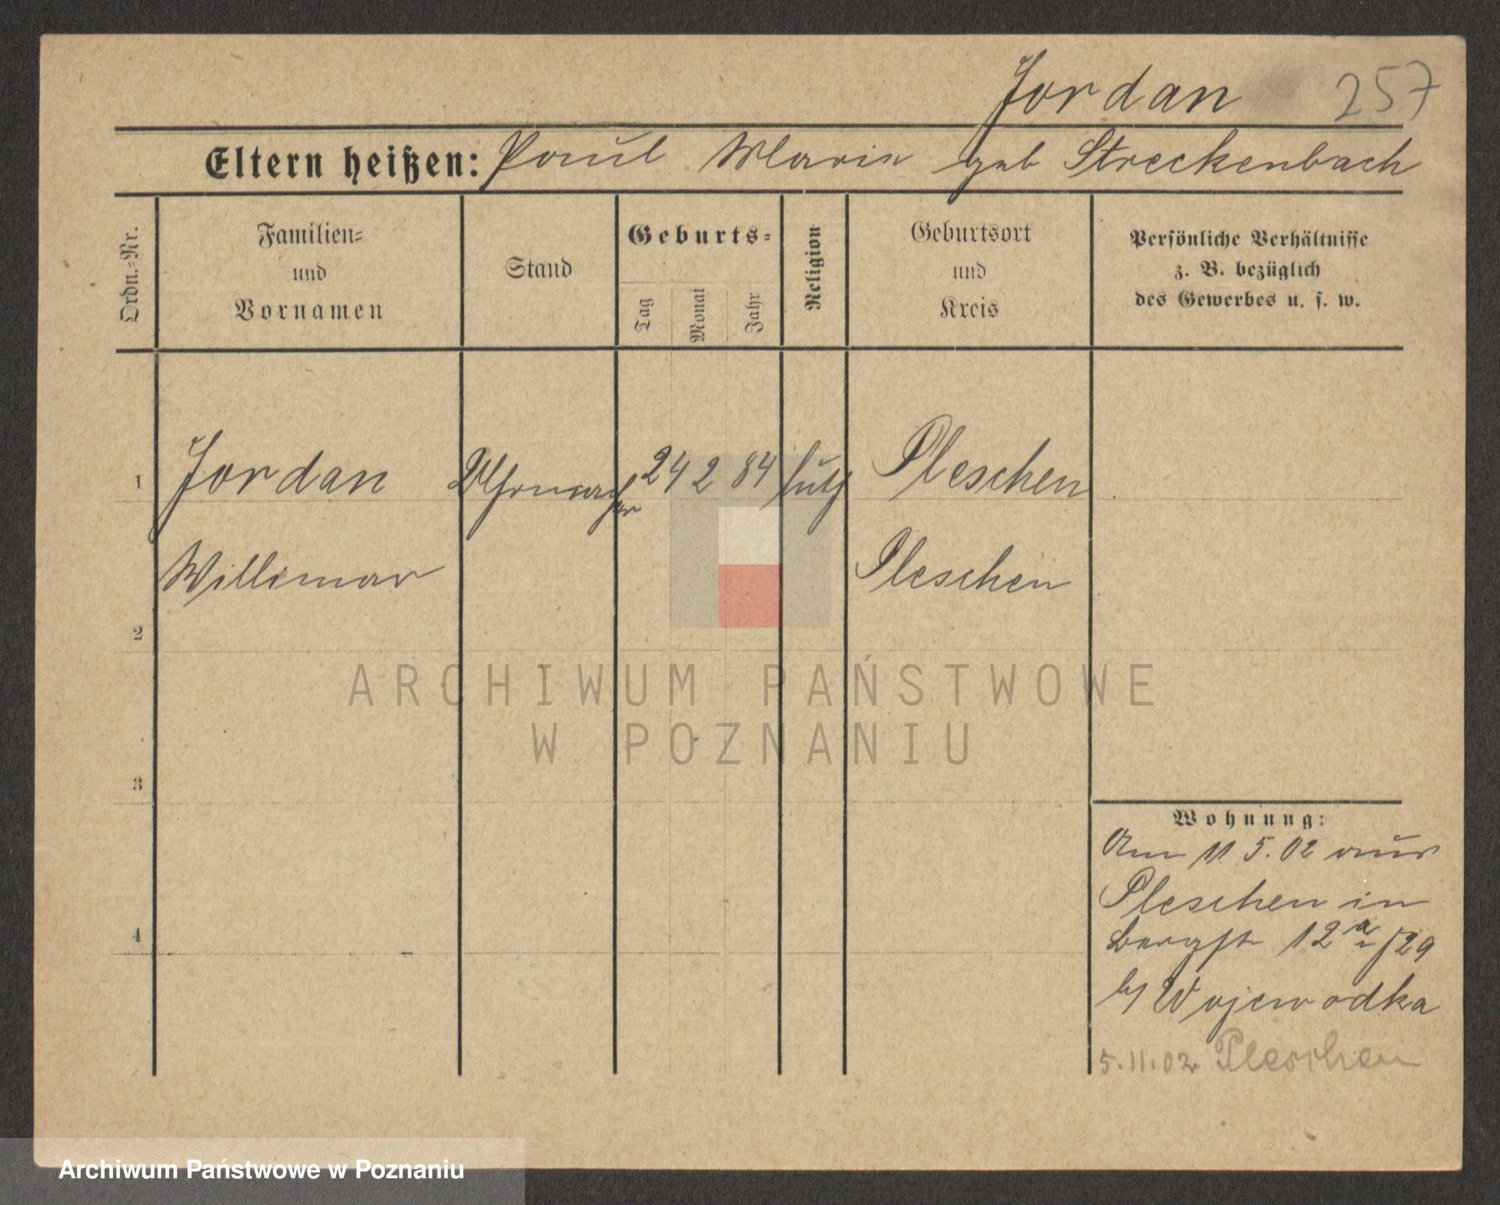 Jordan 257
Eltern heißen: Paul Marie geb Streckenbach
Ordn.-Nr.
Familien- und Vornamen
Stand
Geburts-
Tag
Monat
Jahr
Religion
Geburtsort und Kreis
Persönliche Verhältnisse
z. B. bezüglich
des Gewerbes u. s. w.
1 Jordan Uhrmacher 24 2 84 luth Pleschen
Willimar Pleschen
2
3
4
ARCHIWUM PAŃSTWOWE
W POZNANIU
Wohnung:
Am 11. 5. 02 aus
Pleschen in
Bergst 12 a /29
b/ Wojewodka
5.11.02 Pleschen
Archiwum Państwowe w Poznaniu